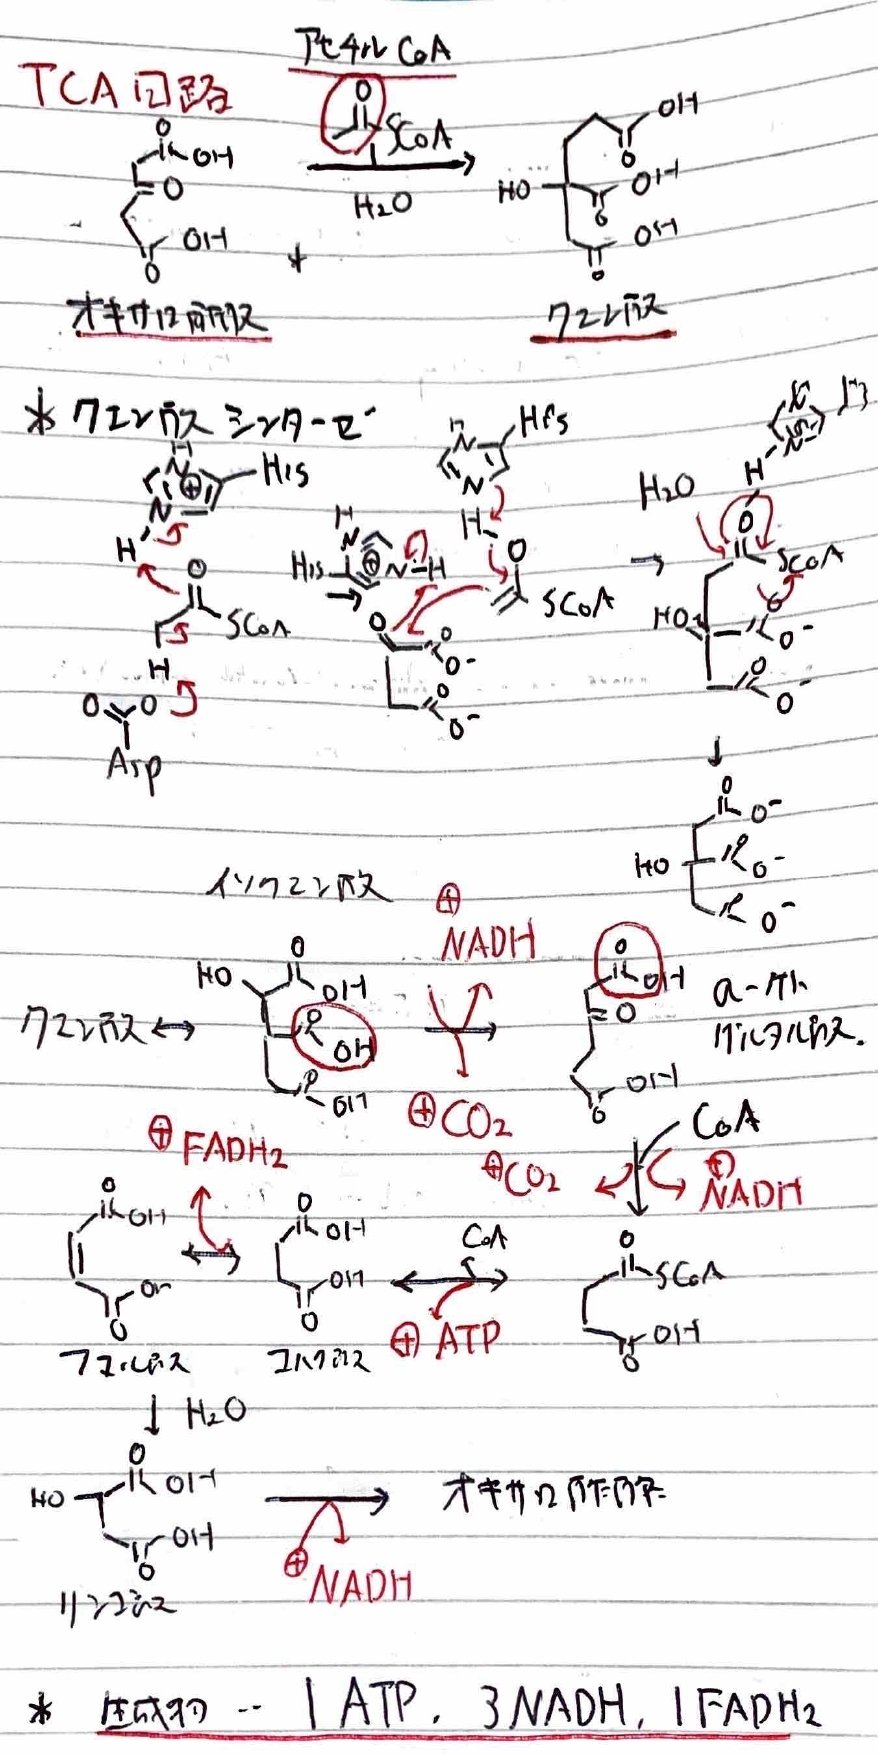 アセチルCoA
TCA回路
O
OH
O
OH
O
O
SCoA
H₂O
OH
O
HO
OH
O
OH
O
*
オキサロ酢酸
クエン酸
* クエン酸シンターゼ
H
N
⊕
His
N
H
O
SCoA
H
O O
Asp
H
N
His
⊕
N-H
O
O
O-
O
O-
H
N
His
N
H
O
SCoA
H₂O
H
O
SCoA
HO
O-
O
O-
O
O-
HO
O-
O-
イソクエン酸
⊕
NADH
クエン酸 ↔
HO
O
OH
OH
OH
⊕CO₂
O
OH
O
OH
O
α-ケト
グルタル酸.
CoA
⊕CO₂
⊕
NADH
⊕
FADH2
O
OH
O
フマル酸
O
OH
OH
O
コハク酸
CoA
⊕ ATP
O
SCoA
OH
O
↓ H₂O
O
HO
OH
OH
O
リンゴ酸
⊕
NADH
オキサロ酢酸
* 生成物 -- 1 ATP, 3 NADH, 1 FADH₂